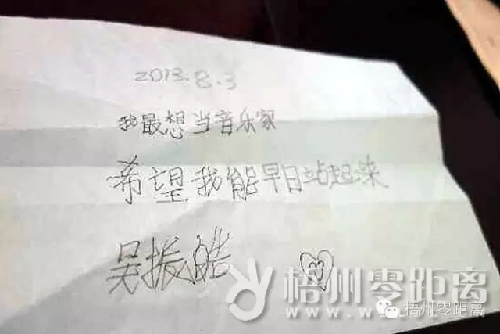 2013.8.3
我最想当音乐家
希望我能早日站起来
吴振皓
梧州零距离
梧州零距离